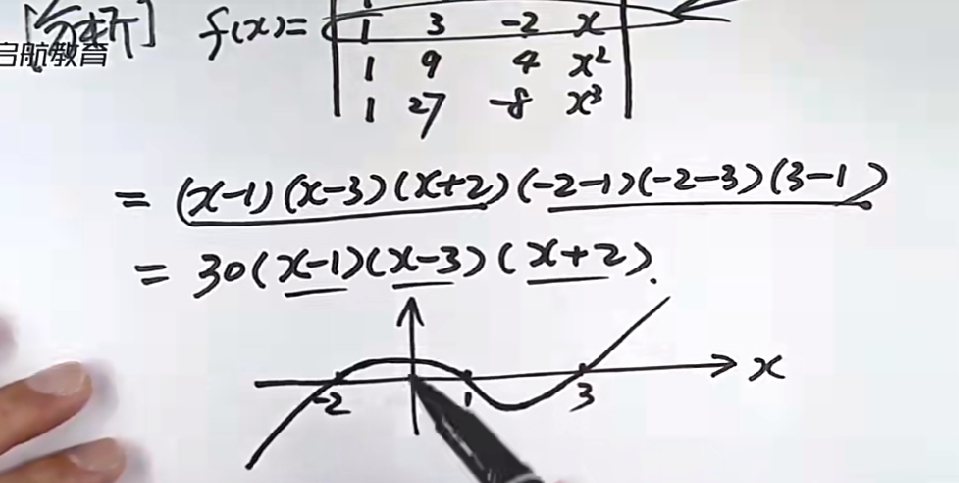 [分析] f(x)= | 1 3 -2 x |
启航教育
1 9 4 x²
1 27 -8 x³
= (x-1)(x-3)(x+2)(-2-1)(-2-3)(3-1)
= 30(x-1)(x-3)(x+2).
x
-2 1 3